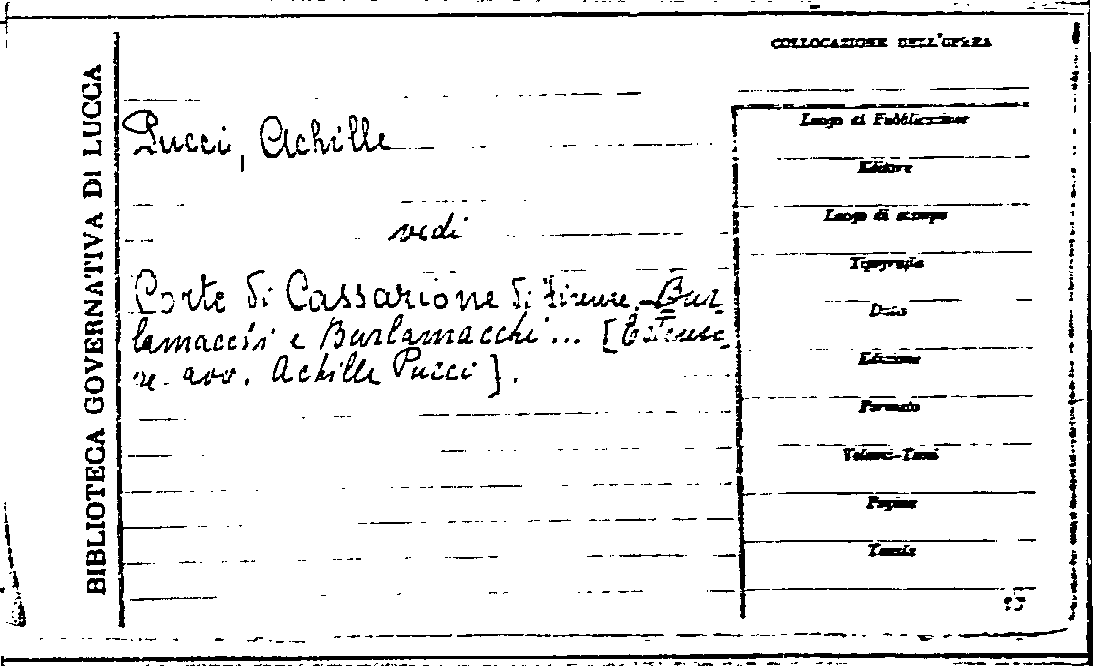 BIBLIOTECA GOVERNATIVA DI LUCCA
COLLOCAZIONE DELL'OPERA
Pucci, Achille
vedi
Corte di Cassazione di Firenze. Bur-
lamacchi e Burlamacchi ... [Estenso-
re avv. Achille Pucci].
Luogo di Pubblicazione
Editore
Luogo di stampa
Tipografia
Data
Edizione
Formato
Volumi-Tomi
Pagine
Tavole